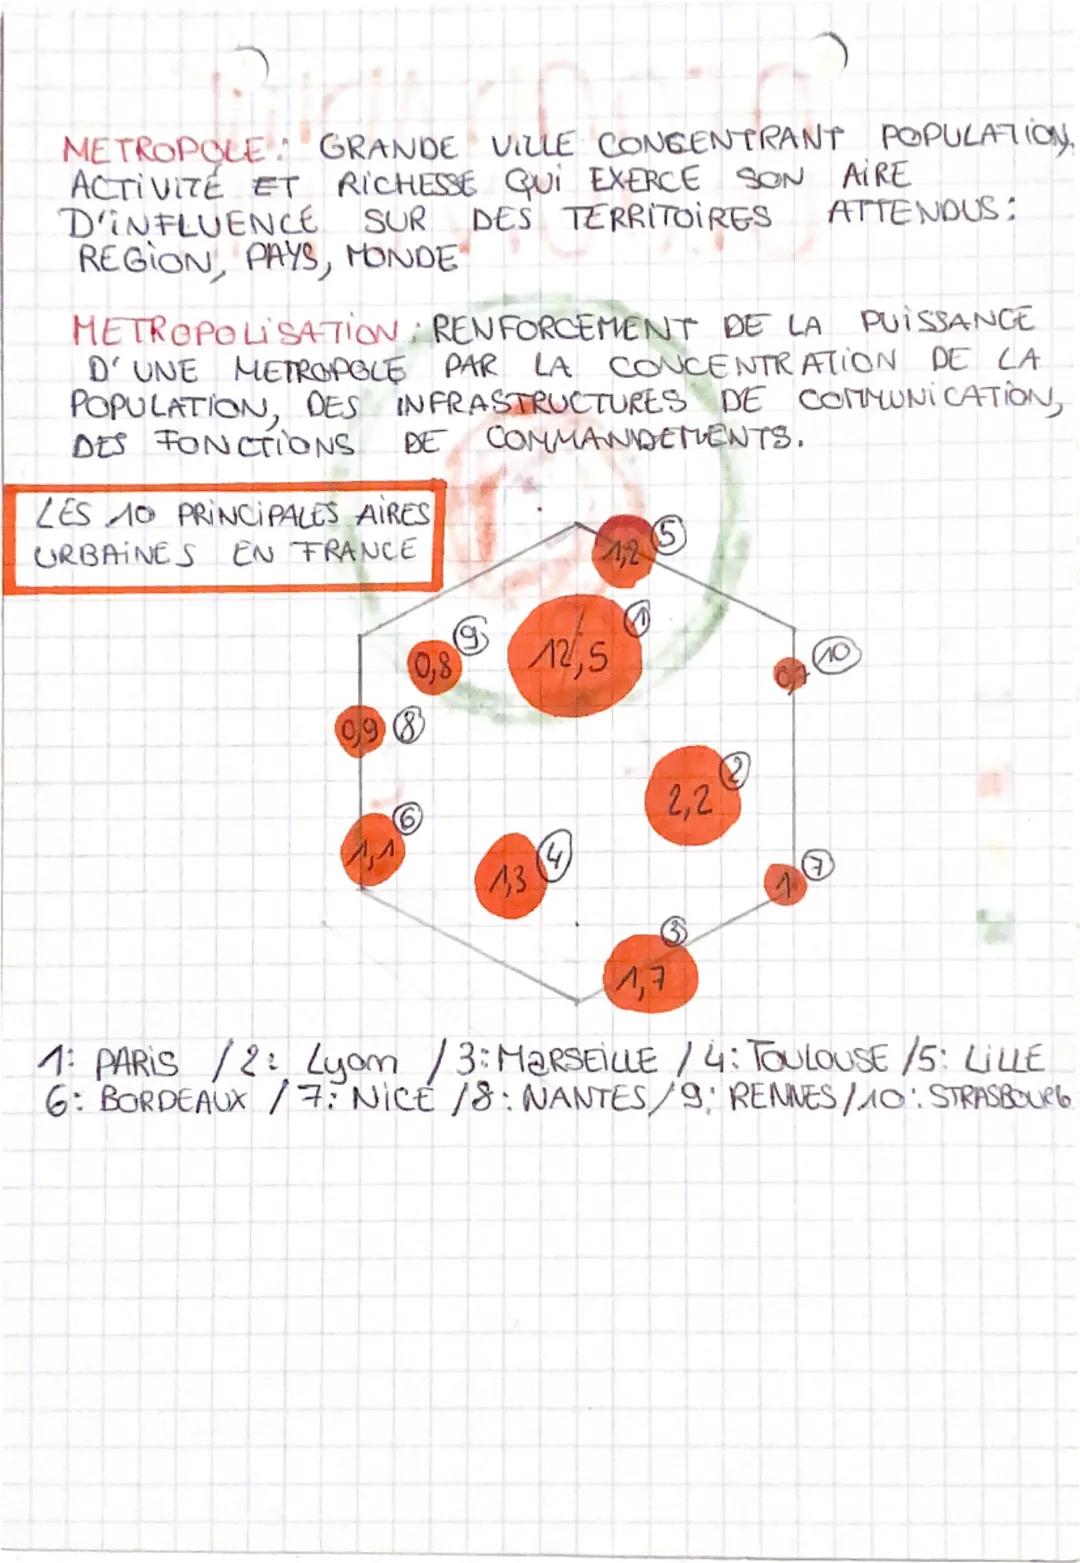 METROPOLE : GRANDE VILLE CONCENTRANT POPULATION,
ACTIVITÉ ET RICHESSE QUI EXERCE SON AIRE
D'INFLUENCE SUR DES TERRITOIRES ATTENDUS :
REGION, PAYS, MONDE
METROPOLISATION : RENFORCEMENT DE LA PUISSANCE
D'UNE METROPOLE PAR LA CONCENTRATION DE LA
POPULATION, DES INFRASTRUCTURES DE COMMUNICATION,
DES FONCTIONS DE COMMANDEMENTS.
LES 10 PRINCIPALES AIRES
URBAINES EN FRANCE
1,2 5
12,5 1
0,8 9
0,7 10
0,9 8
2,2 2
1,1 6
1,3 4
1 7
1,7 3
1: PARIS / 2: Lyon / 3: MARSEILLE / 4: TOULOUSE / 5: LILLE
6: BORDEAUX / 7: NICE / 8: NANTES / 9: RENNES / 10: STRASBOURG